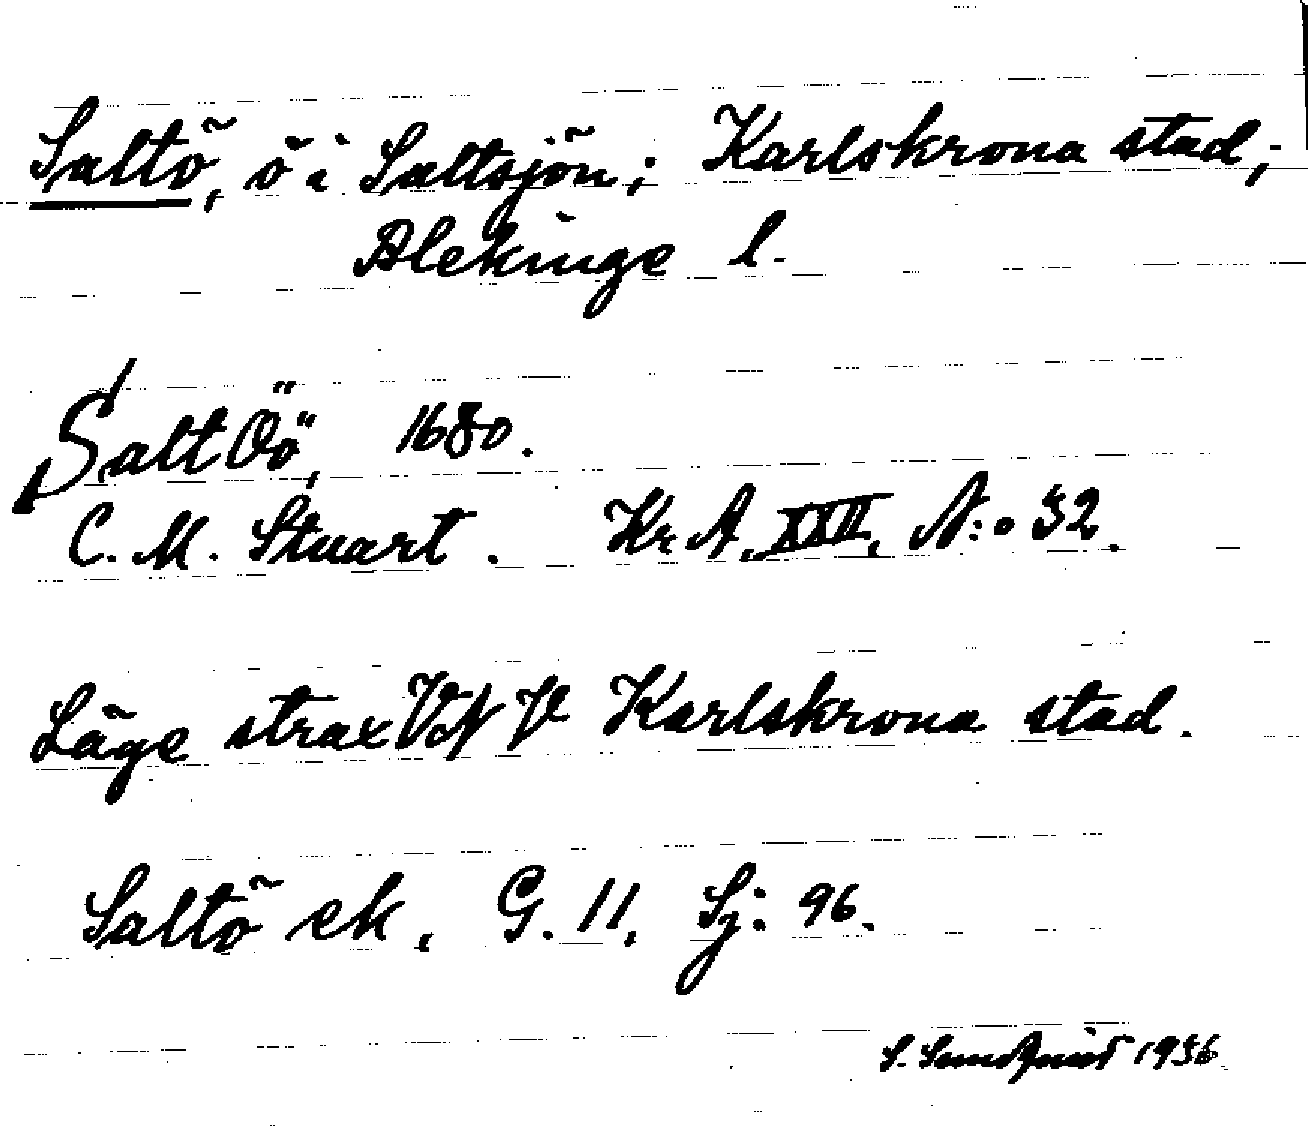 Saltö, ö i Saltsjön; Karlskrona stad;
Blekinge l.
Salt Öö, 1680.
C. M. Stuart. Kr. A. XXII, N:o 32.
Läge strax VNV Karlskrona stad.
Saltö ek. G. 11, Sj: 96.
S. Sundquist 1936